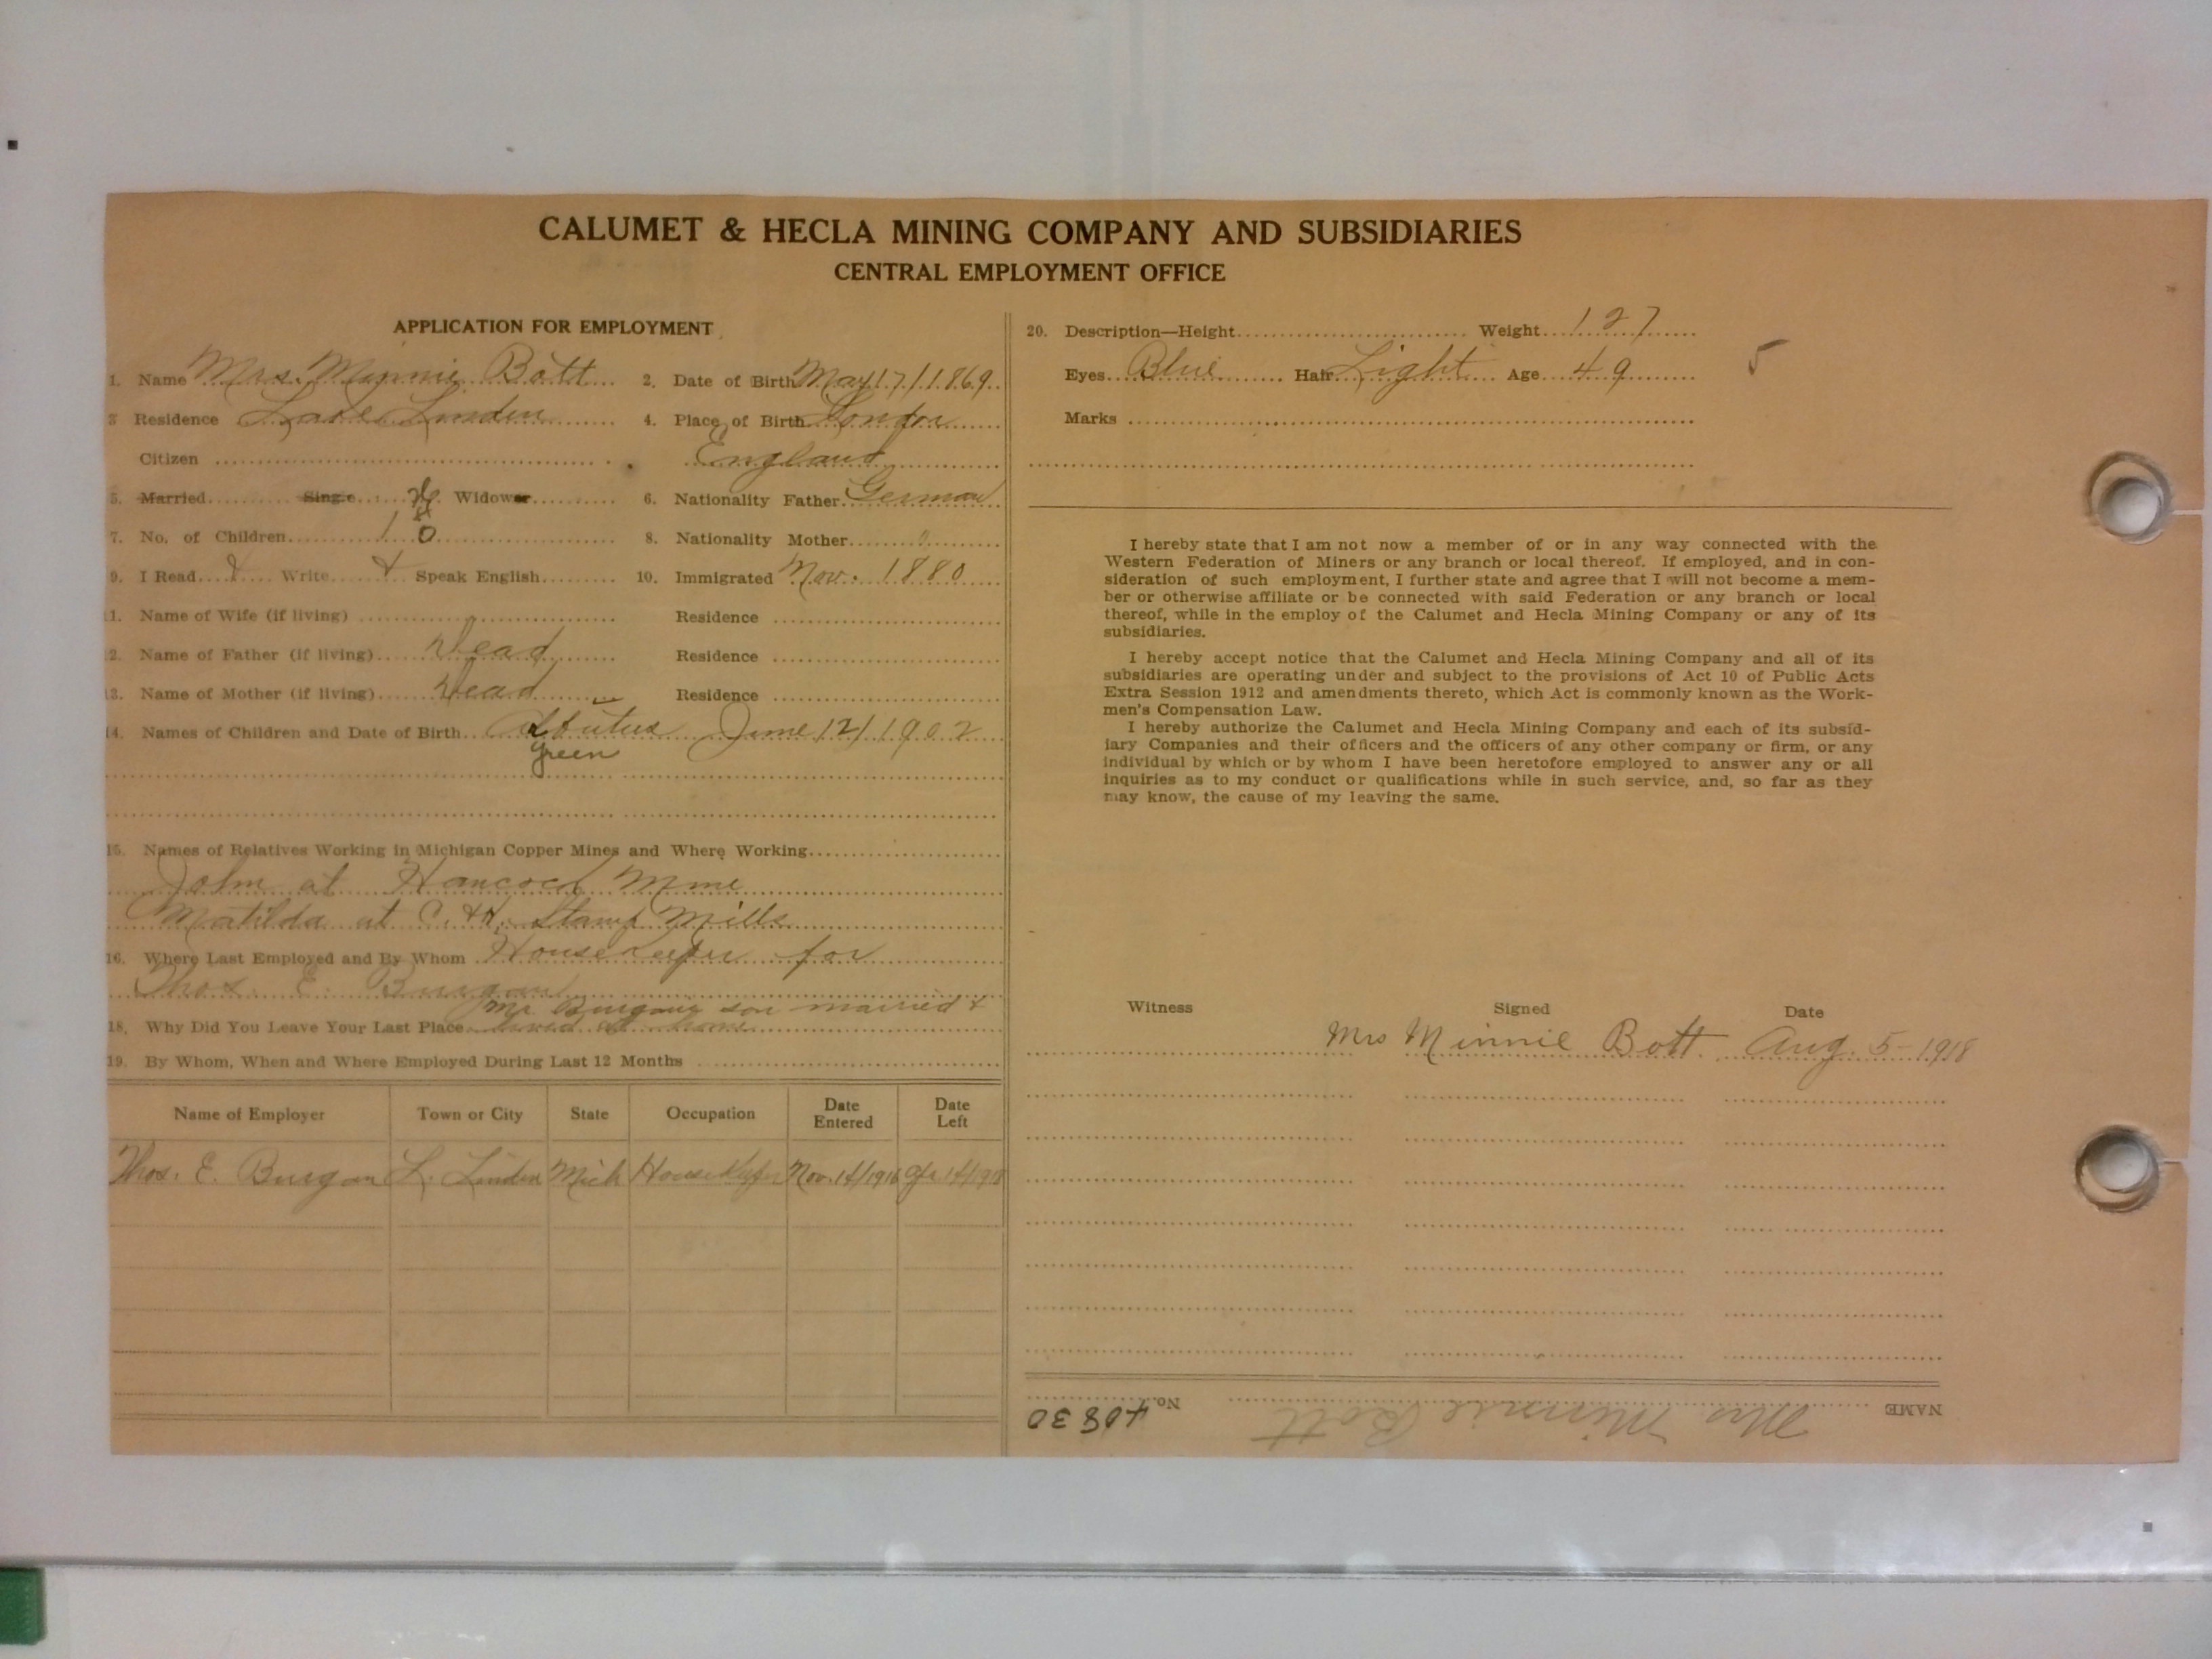 CALUMET & HECLA MINING COMPANY AND SUBSIDIARIES
CENTRAL EMPLOYMENT OFFICE
APPLICATION FOR EMPLOYMENT
1. Name Mrs. Minnie Bott 2. Date of Birth May 17/1869
3 Residence Lake Linden 4. Place of Birth London
Citizen England
5. Married Single Widower 6. Nationality Father German
7. No. of Children 1 8. Nationality Mother "
9. I Read Write Speak English 10. Immigrated Nov. 1880
11. Name of Wife (if living) Residence
12. Name of Father (if living) Dead Residence
13. Name of Mother (if living) Dead Residence
14. Names of Children and Date of Birth June 12/1902
Green
15. Names of Relatives Working in Michigan Copper Mines and Where Working
John at Hancock Mine
Matilda at C. & H. Stamp Mills
16. Where Last Employed and By Whom Housekeeper for
Thos. E. Burgan
Mr Burgans son married &
18. Why Did You Leave Your Last Place lived at home
19. By Whom, When and Where Employed During Last 12 Months
Name of Employer Town or City State Occupation Date Entered Date Left
Thos. E. Burgan L. Linden Mich Housekeeper Nov. 14/1916
20. Description—Height Weight 127
5
Eyes Blue Hair Light Age 49
Marks
I hereby state that I am not now a member of or in any way connected with the
Western Federation of Miners or any branch or local thereof. If employed, and in con-
sideration of such employment, I further state and agree that I will not become a mem-
ber or otherwise affiliate or be connected with said Federation or any branch or local
thereof, while in the employ of the Calumet and Hecla Mining Company or any of its
subsidiaries.
I hereby accept notice that the Calumet and Hecla Mining Company and all of its
subsidiaries are operating under and subject to the provisions of Act 10 of Public Acts
Extra Session 1912 and amendments thereto, which Act is commonly known as the Work-
men's Compensation Law.
I hereby authorize the Calumet and Hecla Mining Company and each of its subsid-
iary Companies and their officers and the officers of any other company or firm, or any
individual by which or by whom I have been heretofore employed to answer any or all
inquiries as to my conduct or qualifications while in such service, and, so far as they
may know, the cause of my leaving the same.
Witness Signed Date
Mrs Minnie Bott Aug. 5-1918
NAME Mrs Minnie Bott No. 40830